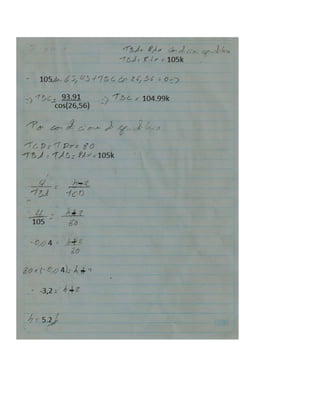 TBA = RAx condicion equilibrio
TBA = RAx = 105k
105 sen 63,43 + TBC cos 26,56 = 0 =>
=> TBC = 93,91 / cos(26,56) => TBC = 104.99k
Por condiciones de equilibrio
TCD = TDx = 80
TBA = TAB = RAx = 105k
4 / TBA = h-2 / TCD
4 / 105 = h+2 / 80
-0,04 = h+2 / 80
80 × (-0,04) = h+2
-3,2 = h+2
h = 5.2